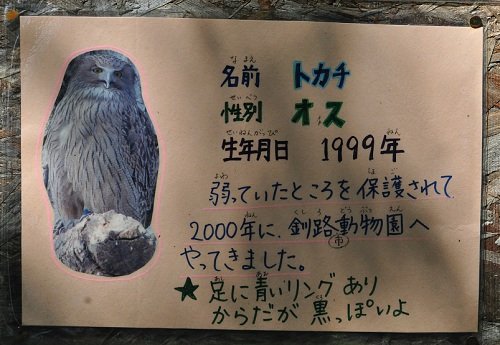 名前 トカチ
性別 オス
生年月日 1999年
弱っていたところを保護されて
2000年に、釧路市動物園へ
やってきました。
★足に青いリングあり
からだが黒っぽいよ